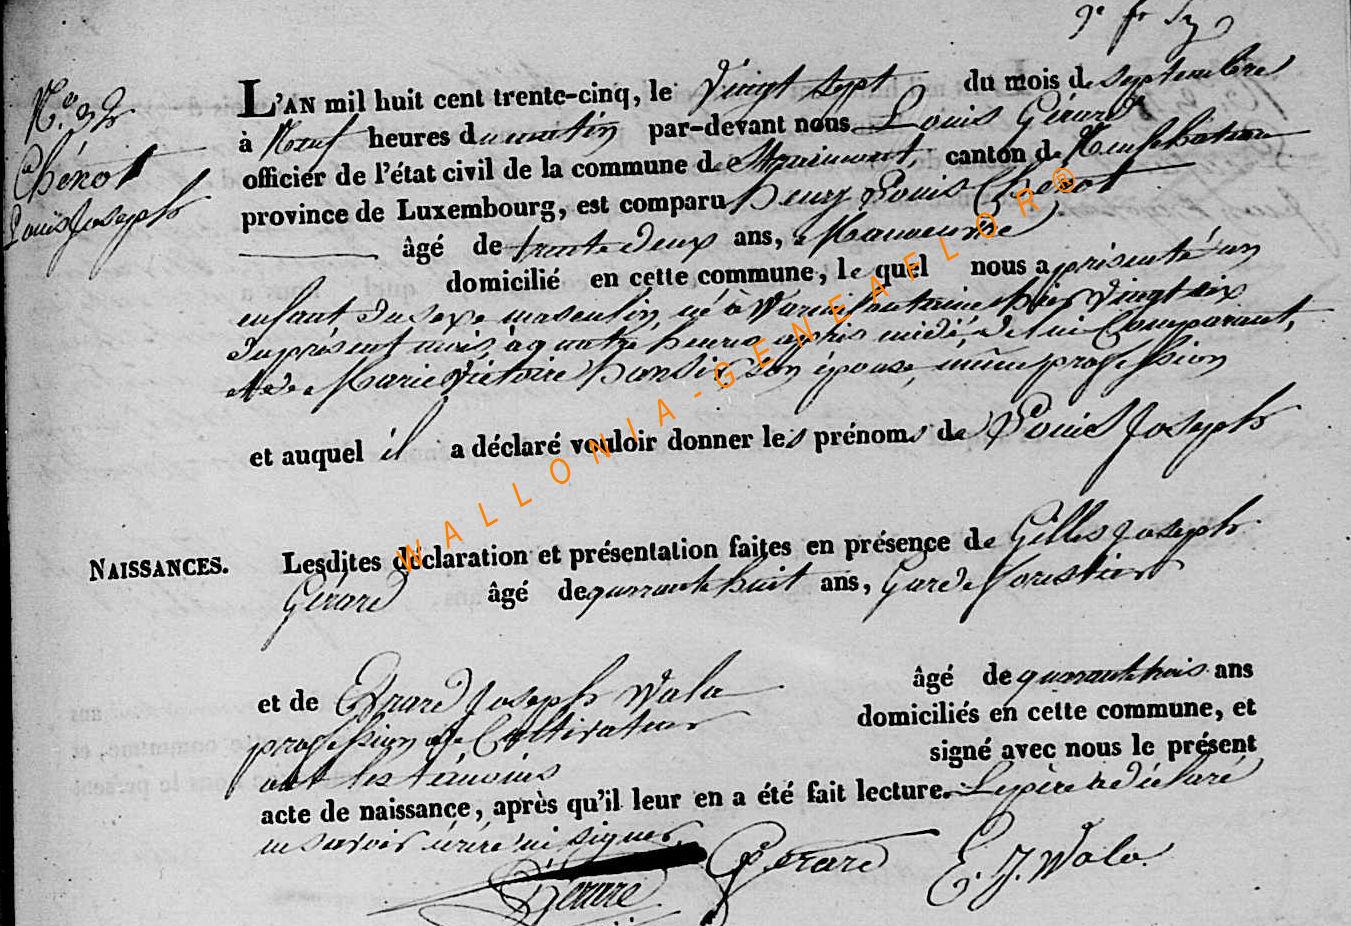 9e fr
N.o 32
Chénot
Louis Joseph
L'AN mil huit cent trente-cinq, le Vingt sept du mois de septembre
à Neuf heures du matin par-devant nous Louis Gérard
officier de l'état civil de la commune de Straimont, canton de Neufchateau
province de Luxembourg, est comparu henry Louis Chenot
âgé de trente deux ans, Manoeuvre
domicilié en cette commune, le quel nous a présenté un
enfant du sexe masculin, né à Warmifontaine hier Vingt six
du présent mois, à quatre heures après midi, de lui Comparant,
et de Marie Victoire son épouse, même profession
et auquel il a déclaré vouloir donner les prénoms de Louis Joseph
NAISSANCES.
Lesdites déclaration et présentation faites en présence de Gilles Joseph
Gérard âgé de quarante huit ans, Garde forestier
et de Erard Joseph Wala âgé de quarante trois ans
profession de Cultivateur domiciliés en cette commune, et
ont les témoins signé avec nous le présent
acte de naissance, après qu'il leur en a été fait lecture. Le père a déclaré
ne savoir écrire ni signer
Gerard Gerard E. J. Wala
WALLONIA-GENEAFLOR®